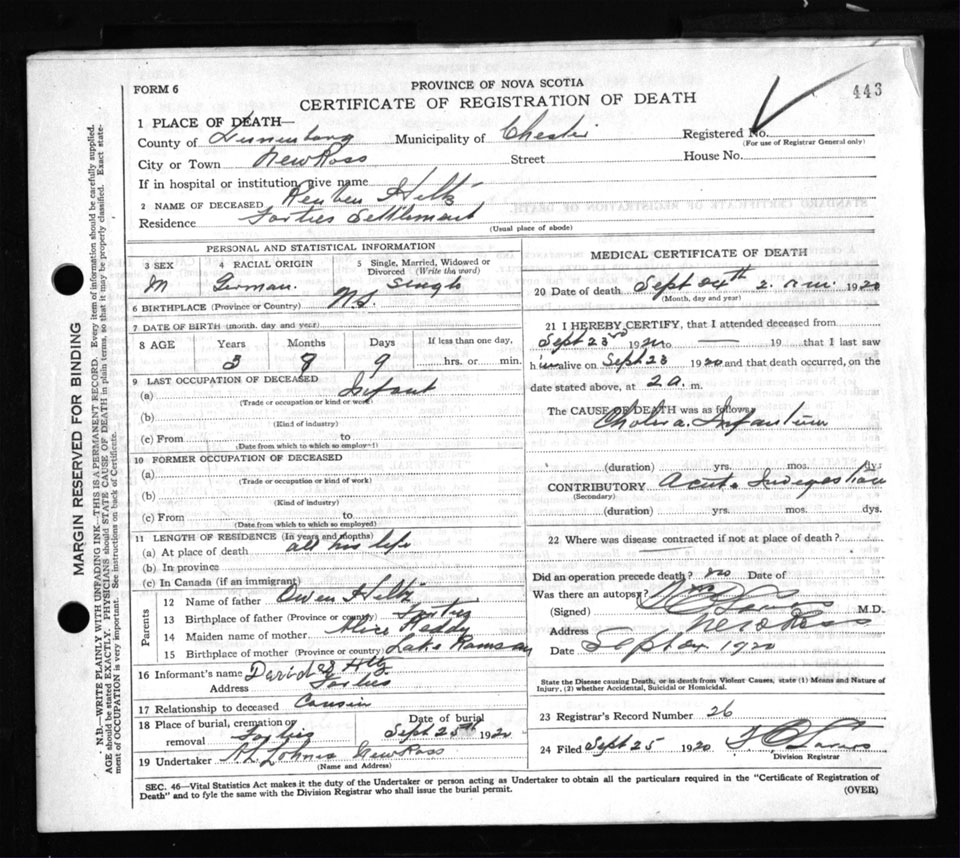 FORM 6
PROVINCE OF NOVA SCOTIA
CERTIFICATE OF REGISTRATION OF DEATH
443
1 PLACE OF DEATH—
County of Lunenburg Municipality of Chester Registered No.
(For use of Registrar General only)
City or Town New Ross Street House No.
If in hospital or institution give name
2 NAME OF DECEASED Reuben Hiltz
Residence Forties Settlement
(Usual place of abode)
PERSONAL AND STATISTICAL INFORMATION
3 SEX 4 RACIAL ORIGIN 5 Single, Married, Widowed or Divorced (Write the word)
M German. Single
6 BIRTHPLACE (Province or Country) N.S.
7 DATE OF BIRTH (month, day and year)
8 AGE Years Months Days If less than one day,
8 9 hrs. or min.
9 LAST OCCUPATION OF DECEASED
(a) Infant
(Trade or occupation or kind or work)
(b)
(Kind of industry)
(c) From to
(Date from which to which so employ-1)
10 FORMER OCCUPATION OF DECEASED
(a)
(Trade or occupation or kind of work)
(b)
(Kind of industry)
(c) From to
(Date from which to which so employed)
11 LENGTH OF RESIDENCE (In years and months)
(a) At place of death all his life
(b) In province
(c) In Canada (if an immigrant)
Parents
12 Name of father Owen Hiltz
13 Birthplace of father (Province or country) Forties
14 Maiden name of mother Alice Reddy
15 Birthplace of mother (Province or country) Lake Ramsay
16 Informant's name David Hiltz
Address Forties
17 Relationship to deceased Cousin
18 Place of burial, cremation or removal Forties Date of burial Sept 25th 1920
19 Undertaker Lohnes New Ross
(Name and Address)
MEDICAL CERTIFICATE OF DEATH
20 Date of death Sept 24th 2. a.m. 1920
(Month, day and year)
21 I HEREBY CERTIFY, that I attended deceased from
Sept 23rd 1920 to — 19 that I last saw
him alive on Sept 23 1920 and that death occurred, on the
date stated above, at 2 a. m.
The CAUSE OF DEATH was as follows:
Cholera Infantum
(duration) yrs. mos. dys.
CONTRIBUTORY Acute Indigestion
(Secondary)
(duration) yrs. mos. dys.
22 Where was disease contracted if not at place of death?
Did an operation precede death? no Date of
Was there an autopsy? no
(Signed) M.D.
Address New Ross
Date Sept 24 1920
State the Disease causing Death, or in death from Violent Causes, state (1) Means and Nature of
Injury, (2) whether Accidental, Suicidal or Homicidal.
23 Registrar's Record Number 26
24 Filed Sept 25 1920
Division Registrar
SEC. 46—Vital Statistics Act makes it the duty of the Undertaker or person acting as Undertaker to obtain all the particulars required in the "Certificate of Registration of
Death" and to fyle the same with the Division Registrar who shall issue the burial permit. (OVER)
MARGIN RESERVED FOR BINDING
N.B.—WRITE PLAINLY WITH UNFADING INK—THIS IS A PERMANENT RECORD. Every item of information should be carefully supplied.
AGE should be stated EXACTLY. PHYSICIANS should STATE CAUSE OF DEATH in plain terms, so that it may be properly classified. Exact state-
ment of OCCUPATION is very important. See instructions on back of Certificate.